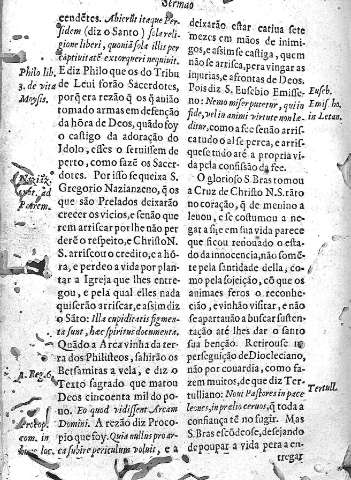 Sermão
cendẽtes. Abierit itaque Per-
fidem (diz o Santo) sola reli-
gione liberi, quoniã sola illis per
captiuitatẽ extorqueri nequiuit.
Philo lib.
3. de vita
Moysis.
E diz Philo que os do Tribu
de Leui forão Sacerdotes,
porq̃ era rezão q̃ os q̃ auião
tomado armas em defensão
da hõra de Deos, quãdo foy
o castigo da adoração do
Idolo, esses o seruissem de
perto, como fazẽ os Sacer-
Nazizz.
ad
dotes. Por isso se queixa S.
Gregorio Nazianzeno, q̃ os
que são Prelados deixarão
crecer os vicios, e senão que
rem arriscar por lhe não per
derẽ o respeito, e Christo N.
S. arriscou o credito, e a hõ-
ra, e perdeo a vida por plan-
tar a Igreja que lhes entre-
gou, e pela qual elles nada
quiserão arriscar, e assim diz
o Sãto: Illa cupiditatis figmen-
ta sunt, hæc spiritus documenta.
Quãdo a Arca vinha da ter-
ra dos Philisteos, sahirão os
1. Reg. 6.
Betsamitas a vela, e diz o
Texto sagrado que matou
Deos cincoenta mil do po-
uo. Eo quod vidissent Arcam
Procop.
com. in
hunc loc.
Domini. A rezão diz Proco-
pio que foy. Quia nullus pro ar-
ca subire periculum voluit, e a
deixarão estar catiua sete
mezes em mãos de inimi-
gos, e assim se castiga, quem
não se arrisca, pera vingar as
injurias, e afrontas de Deos.
Euseb.
Emis. ho.
in Letan.
Pois diz S. Eusebio Emisse-
no: Nemo miser putetur, qui in
fide, vel in animi virtute non læ-
ditur, como a fee senão arris-
ca tudo o al se perca, e arris-
que se tudo atè a propria vi-
da pela confissão da fee.
O glorioso S. Bras tomou
a Cruz de Christo N. S. tão
no coração, q̃ de menino a
leuou, e se costumou a ne-
gar a si, e em sua vida parece
que ficou renouado o esta-
do da innocencia, não sómẽ-
te pela santidade della, co-
mo pela sojeição, cõ que os
animaes feros o reconhe-
cião, e vinhão visitar, e não
se apartauão a buscar susten-
tação atè lhes dar o santo
sua benção. Retirouse na
perseguição de Diocleciano,
não por couardia, como fa-
zem muitos, de que diz Ter-
Tertull.
tulliano: Nout Pastores in pace
leones, in prælio ceruos, q̃ toda a
confiança tẽ no sugir. Mas
S. Bras escõdeose, desejando
de poupar a vida pera a en-
tregar